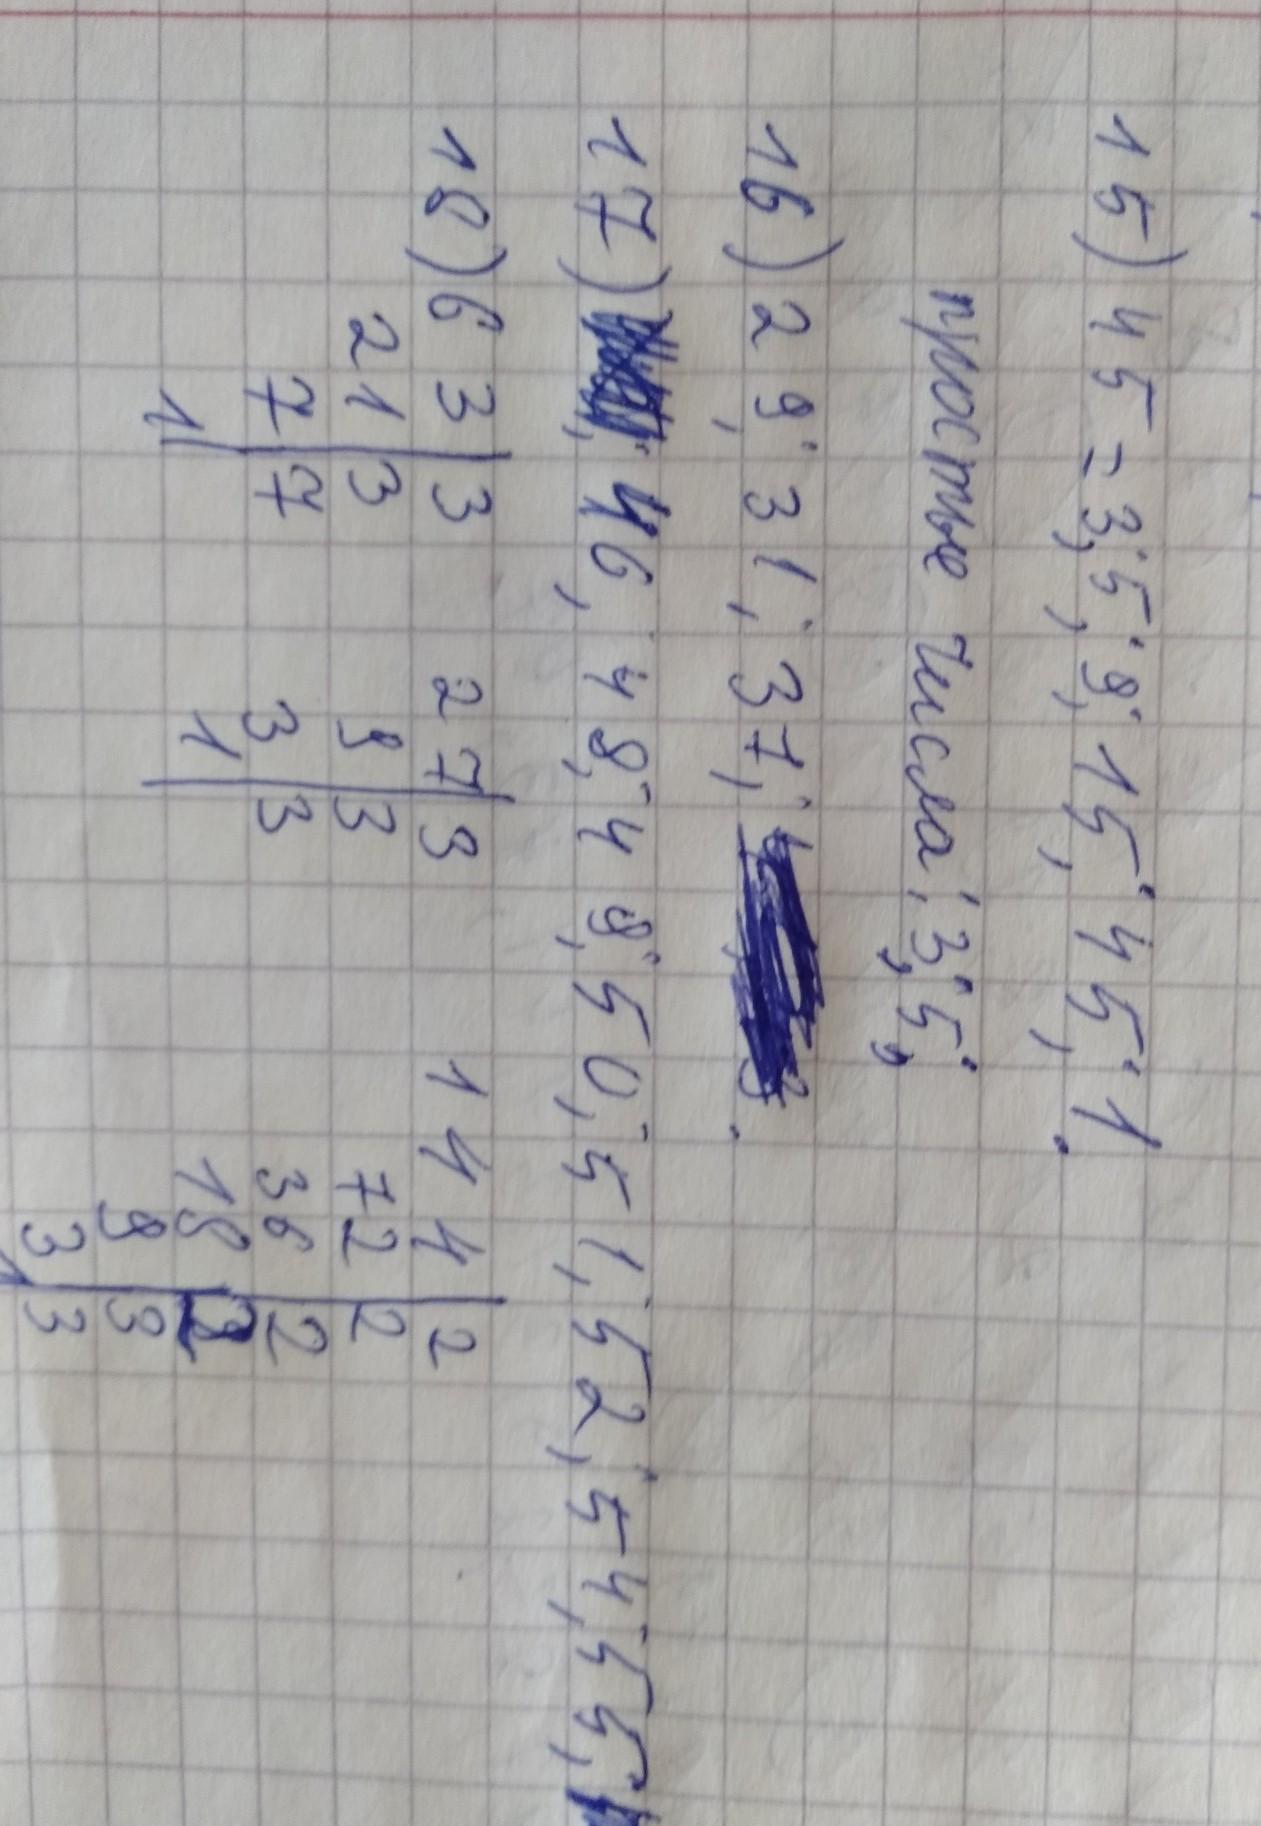 15) 45 = 3; 5; 9; 15; 45; 1.
простые числа: 3; 5;
16) 29; 31; 37;
17) 46; 48; 49; 50; 51; 52; 54; 55;
18) 63|3 27|9 144|2
21|3 9|3 72|2
7|7 3|3 36|2
1 1 18|2
9|3
3|3
1